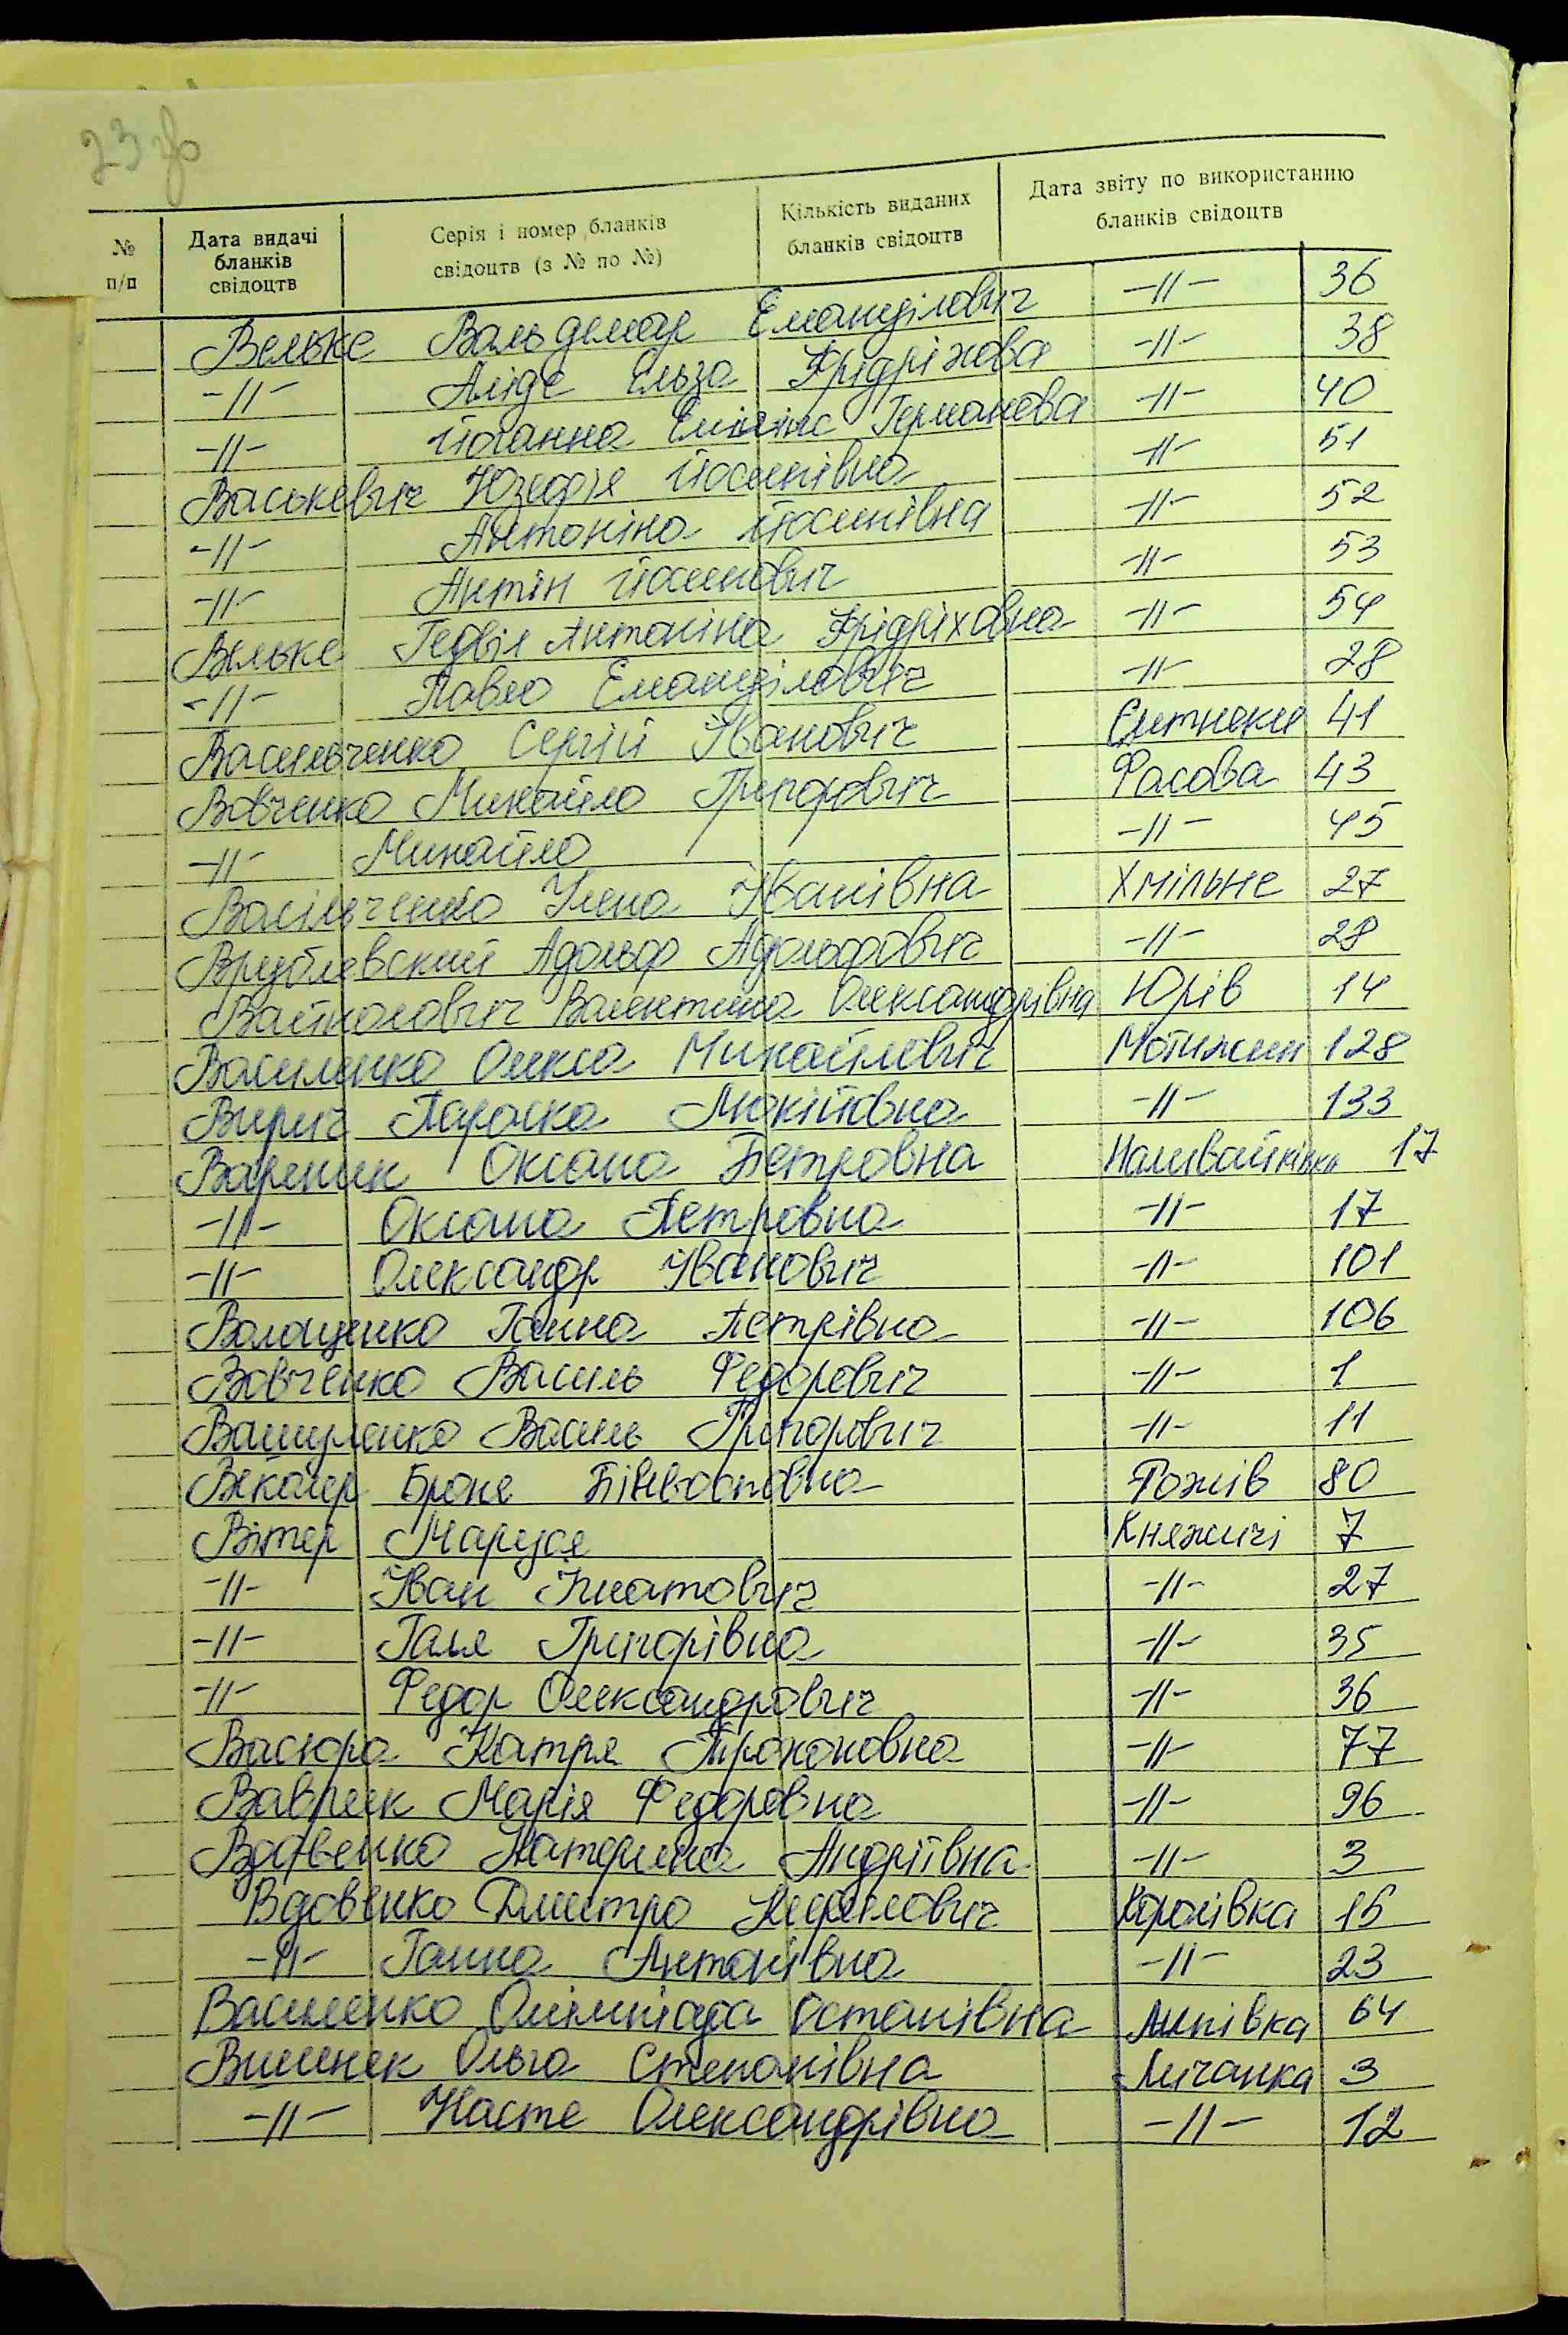 23 зв
№ п/п | Дата видачі бланків свідоцтв | Серія і номер бланків свідоцтв (з № по №) | Кількість виданих бланків свідоцтв | Дата звіту по використанню бланків свідоцтв
Вельке Вальдемар Емануілович -//- 36
-//- Аліде Ельза Фрідріхова -//- 38
-//- Йоганна Германова -//- 40
Васькевич Юзефія Йосипівна -//- 51
-//- Антоніна Йосипівна -//- 52
-//- Антін Йосипович -//- 53
Вельке Гедвіл Антоніна Фрідріховна -//- 54
-//- Павло Емануілович -//- 28
Васильченко Сергій Іванович Ситняки 41
Вовченко Михайло Григорович Фасова 43
-//- Михайло -//- 45
Васільченко Улена Іванівна Хмільне 27
Врублевский Адольф Адольфович -//- 28
Войналович Валентина Олександрівна Юрів 14
Василенко Олекса Михайлович Мотижин 128
Вирич Параска Мокіївна -//- 133
Вареник Оксана Петровна Наливайківка 17
-//- Оксана Петровна -//- 17
-//- Олександр Іванович -//- 101
Волощенко Ганна Петрівна -//- 106
Вовченко Василь Федорович -//- 1
Вашуленко Василь Григорович -//- 11
Броне Рожів 80
Вітер Маруся Княжичі 7
-//- Іван Ігнатович -//- 27
-//- Галя Григорівна -//- 35
-//- Федор Олександрович -//- 36
Васюра Катря Трохоновна -//- 77
Ваврик Марія Федоровна -//- 96
Вдовенко Катерина Андріївна -//- 3
Вдовенко Дмитро Кирилович Королівка 15
-//- Ганна Антонівна -//- 23
Василенко Олімпіада Остапівна Липівка 64
Вишняк Ольга Степанівна Личанка 3
-//- Настя Олександрівна -//- 12